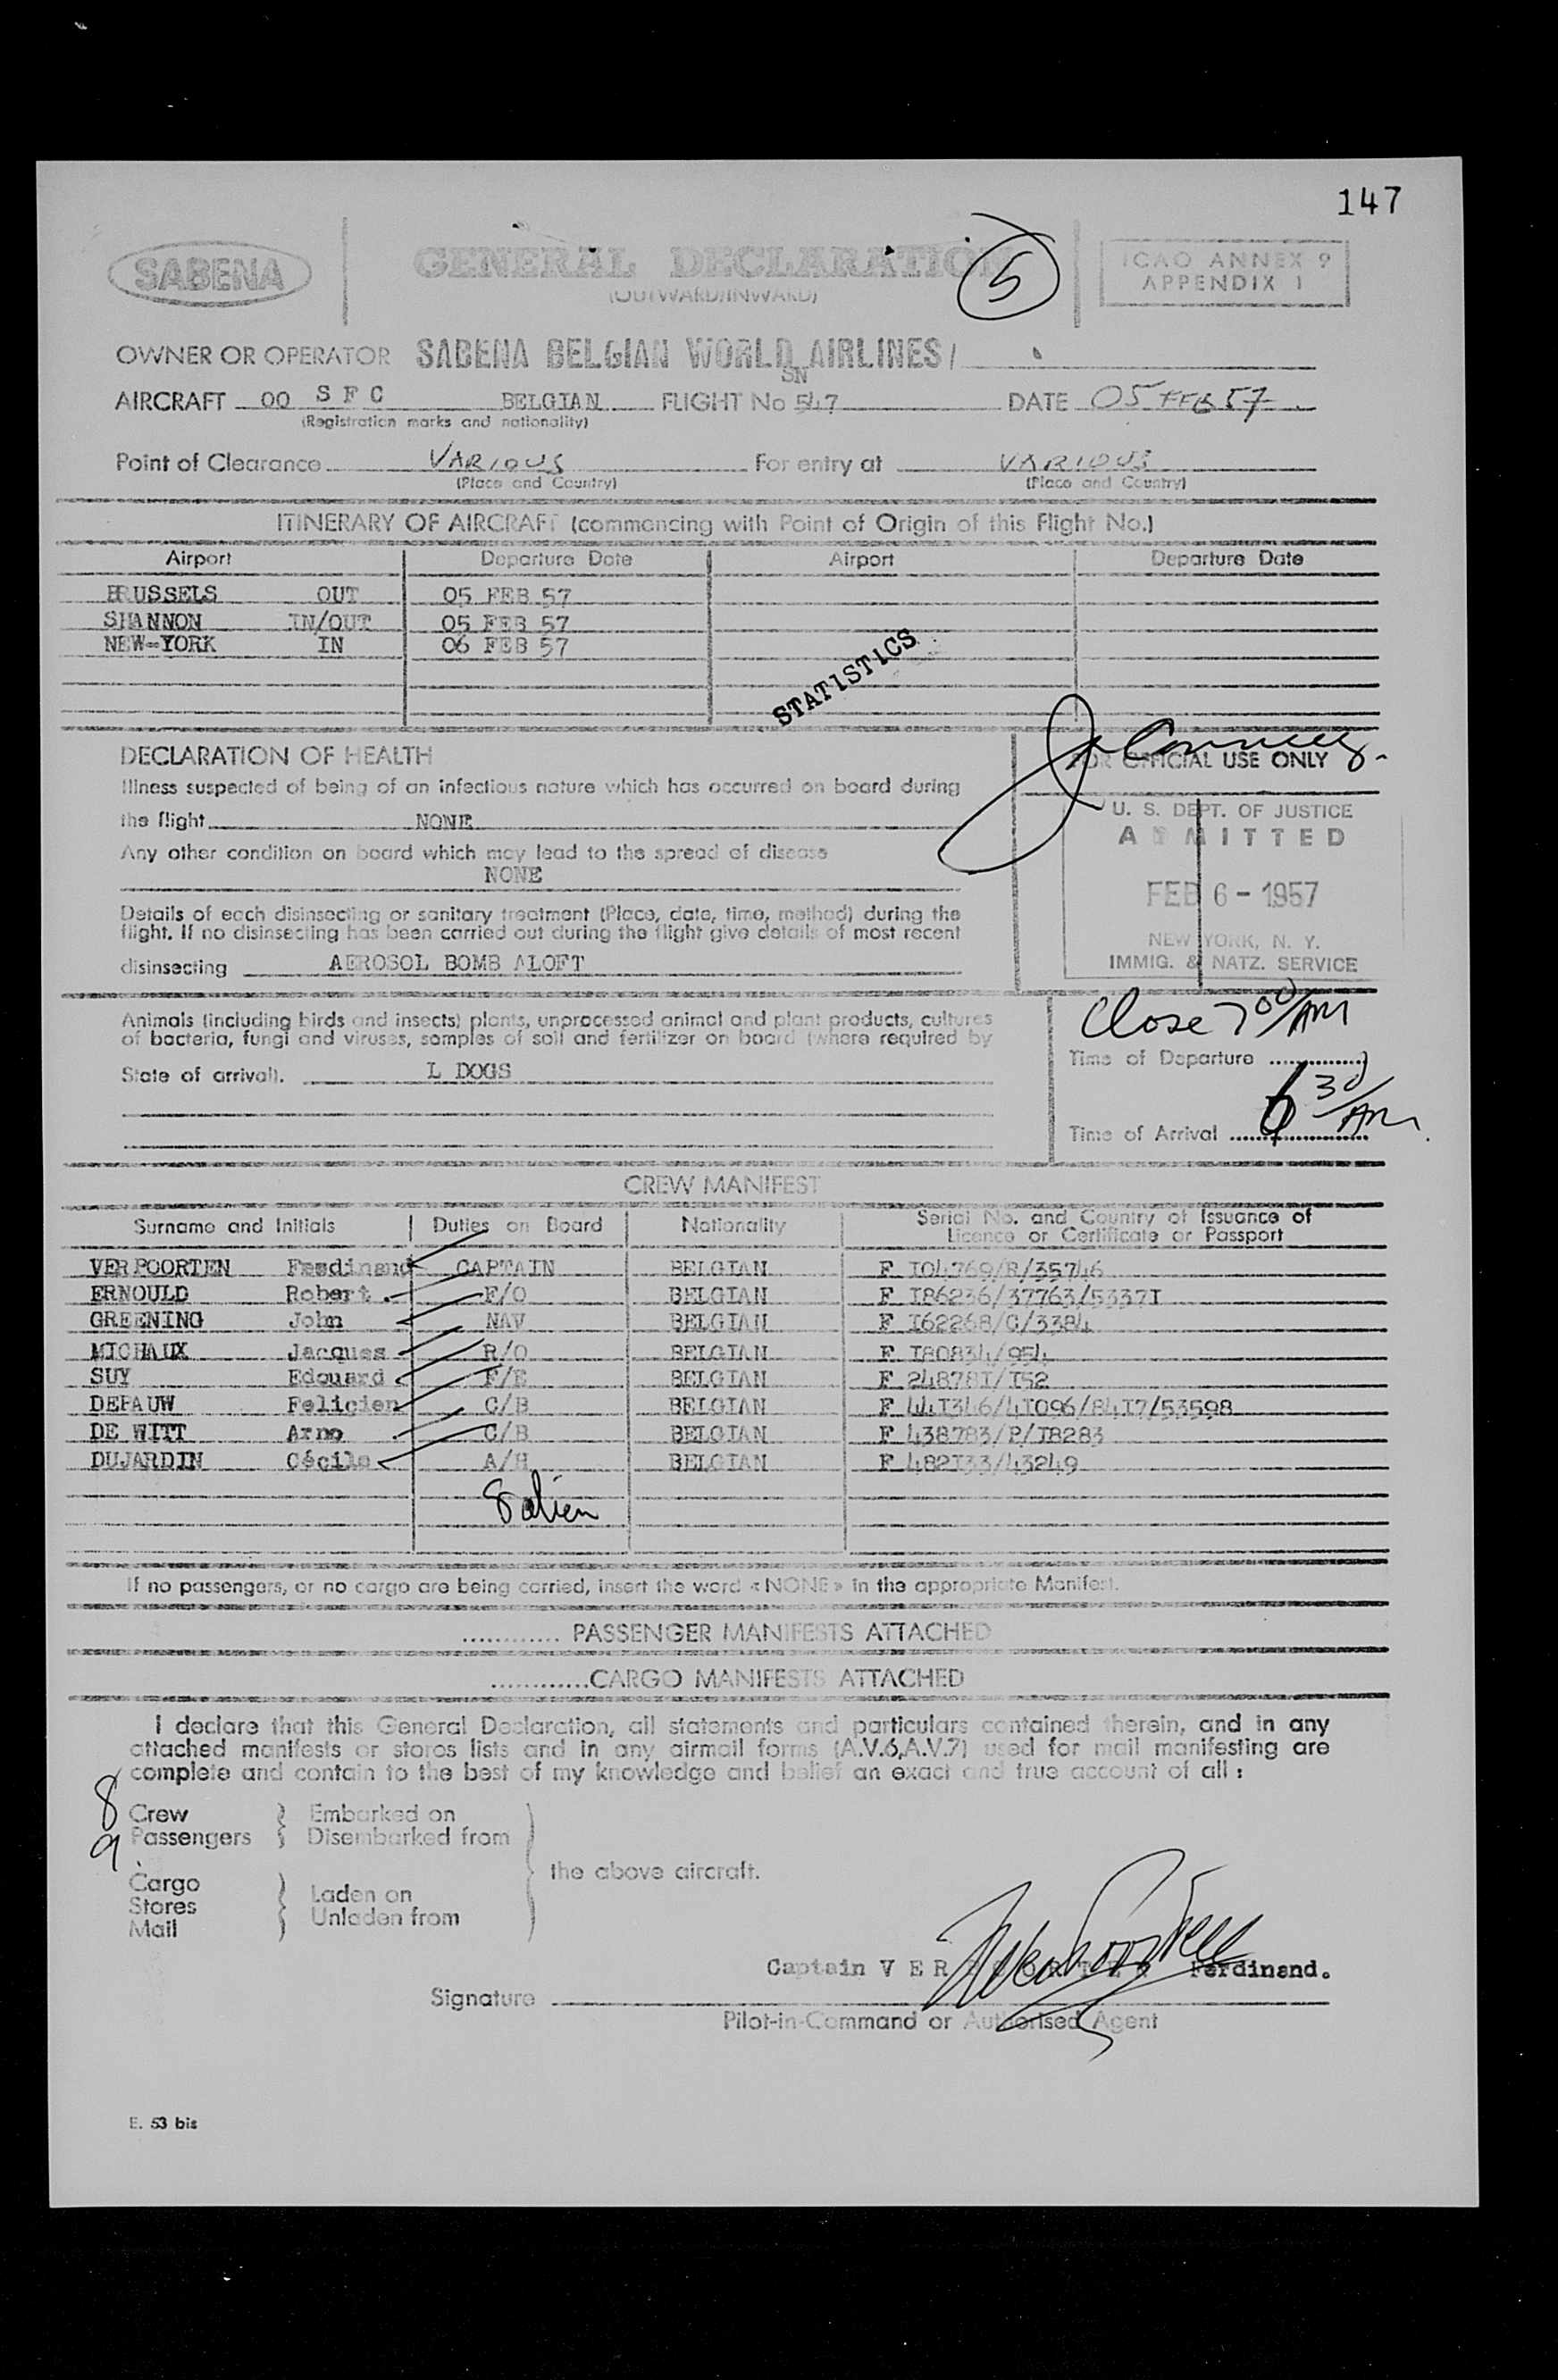 147
SABENA
GENERAL DECLARATION
(OUTWARD/INWARD)
5
ICAO ANNEX 9
APPENDIX 1
OWNER OR OPERATOR SABENA BELGIAN WORLD AIRLINES/
AIRCRAFT OO S F C BELGIAN FLIGHT No SN 547 DATE 05 FEB 57
(Registration marks and nationality)
Point of Clearance VARIOUS For entry at VARIOUS
(Place and Country) (Place and Country)
ITINERARY OF AIRCRAFT (commencing with Point of Origin of this Flight No.)
Airport Departure Date Airport Departure Date
BRUSSELS OUT 05 FEB 57
SHANNON IN/OUT 05 FEB 57
NEW-YORK IN 06 FEB 57
STATISTICS
DECLARATION OF HEALTH
FOR OFFICIAL USE ONLY
Illness suspected of being of an infectious nature which has occurred on board during
the flight NONE
Any other condition on board which may lead to the spread of disease
NONE
Details of each disinsecting or sanitary treatment (Place, date, time, method) during the
flight. If no disinsecting has been carried out during the flight give details of most recent
disinsecting AEROSOL BOMB ALOFT
U. S. DEPT. OF JUSTICE
ADMITTED
FEB 6 - 1957
NEW YORK, N. Y.
IMMIG. & NATZ. SERVICE
Animals (including birds and insects) plants, unprocessed animal and plant products, cultures
of bacteria, fungi and viruses, samples of soil and fertilizer on board (where required by
State of arrival). L DOGS
Close 7 00/AM
Time of Departure
6 30/AM
Time of Arrival
CREW MANIFEST
Surname and Initials Duties on Board Nationality Serial No. and Country of Issuance of
Licence or Certificate or Passport
VERPOORTEN Ferdinand CAPTAIN BELGIAN F I04769/R/35746
ERNOULD Robert F/O BELGIAN F I86236/37763/5337I
GREENING John NAV BELGIAN F I62268/C/3384
MICHAUX Jacques R/O BELGIAN F I80834/954
SUY Edouard F/E BELGIAN F 24878I/I52
DEPAUW Felicien C/B BELGIAN F 44I346/4I096/84I7/53598
DE WITT Arno C/B BELGIAN F 438783/P/I8283
DUJARDIN Cécile A/H BELGIAN F 482I33/43249
8 alien
If no passengers, or no cargo are being carried, insert the word «NONE» in the appropriate Manifest.
............ PASSENGER MANIFESTS ATTACHED
............CARGO MANIFESTS ATTACHED
I declare that this General Declaration, all statements and particulars contained therein, and in any
attached manifests or stores lists and in any airmail forms (A.V.6,A.V.7) used for mail manifesting are
complete and contain to the best of my knowledge and belief an exact and true account of all :
8 Crew Embarked on
9 Passengers Disembarked from
the above aircraft.
Cargo
Stores Laden on
Mail Unladen from
Captain VERPOORTEN Ferdinand.
Signature
Pilot-in-Command or Authorised Agent
E. 53 bis